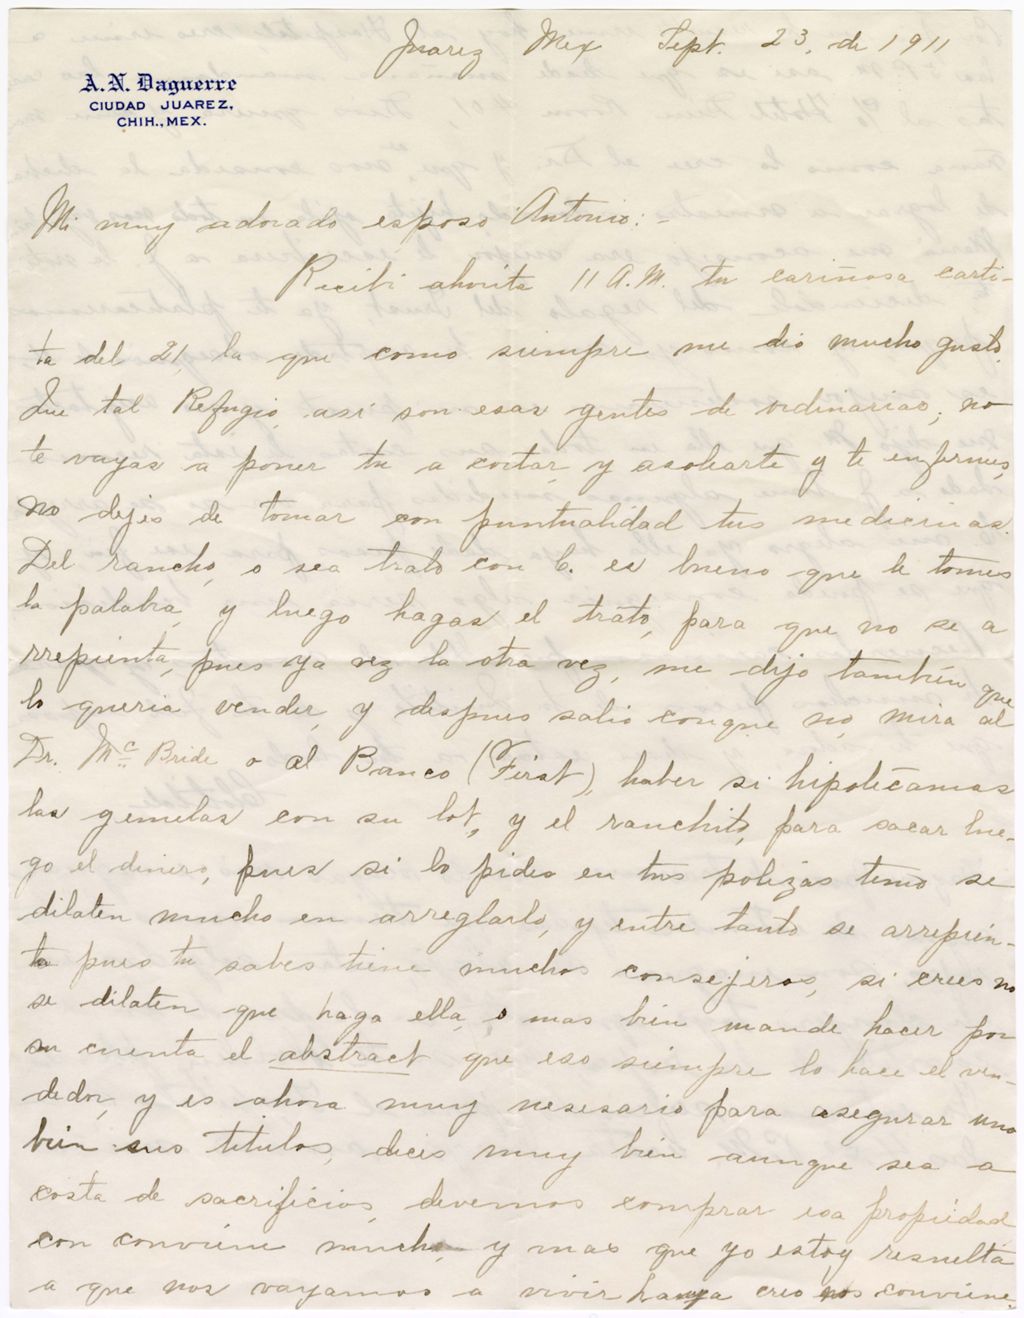 Juarez Mex Sept. 23, de 1911
A. N. Daguerre
CIUDAD JUAREZ,
CHIH., MEX.
Mi muy adorado esposo Antonio:-
Recibi ahorita 11 A.M. tu cariñosa carti-
ta del 21, la que como siempre me dio mucho gusto.
Que tal Refugio, asi son esas gentes de ordinarias, no
te vayas a poner tu a cortar, y asolearte y te enfermes,
no dejes de tomar con puntualidad tus medicinas.
Del rancho, o sea trato con C. es bueno que le tomes
la palabra, y luego hagas el trato, para que no se a
rrepienta, pues ya vez la otra vez, me dijo tambien que
lo queria vender, y despues salio conque no, mira al
Dr. Mc Bride o al Banco (First), haber si hipotecamos
las gemelas con su lot, y el ranchito, para sacar lue-
go el dinero, pues si lo pides en tus polizas temo se
dilaten mucho en arreglarlo, y entre tanto se arrepien-
ta pues tu sabes tiene muchos consejeros, si crees no
se dilaten que haga ella, o mas bien mande hacer por
su cuenta el abstract que eso siempre lo hace el ven-
dedor, y es ahora muy nesesario para asegurar uno
bien sus titulos, dices muy bien aunque sea a
costa de sacrificios, devemos comprar esa propiedad
con conviene mucho, y mas que yo estoy resuelta
a que nos vayamos a vivir haya creo nos conviene.